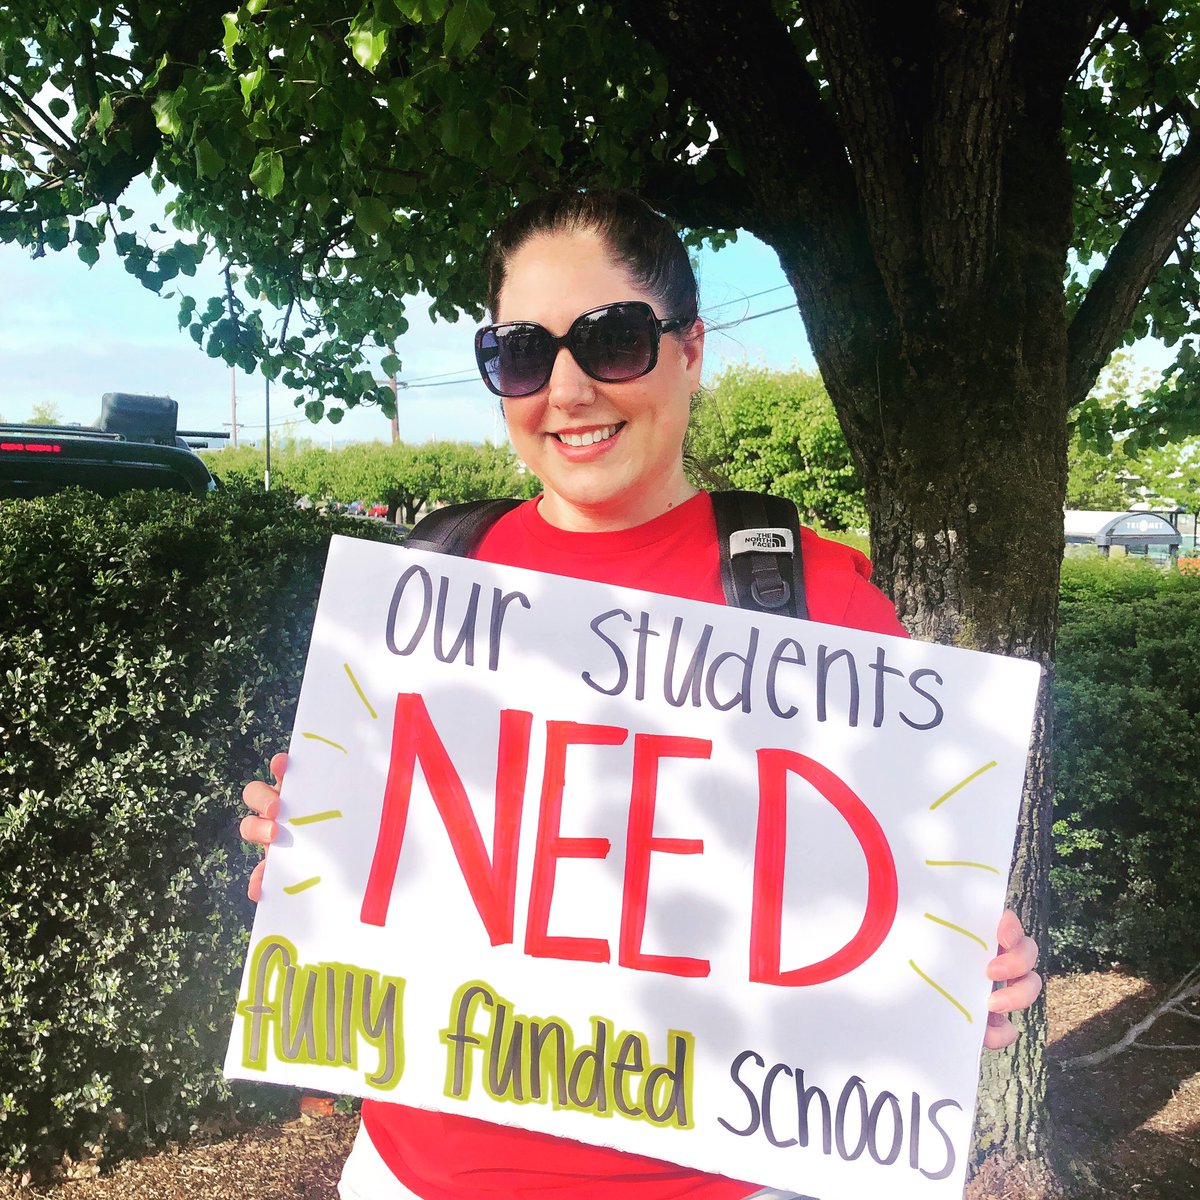 THE
NORTH
FACE
TRI MET
our students
NEED
fully funded
schools